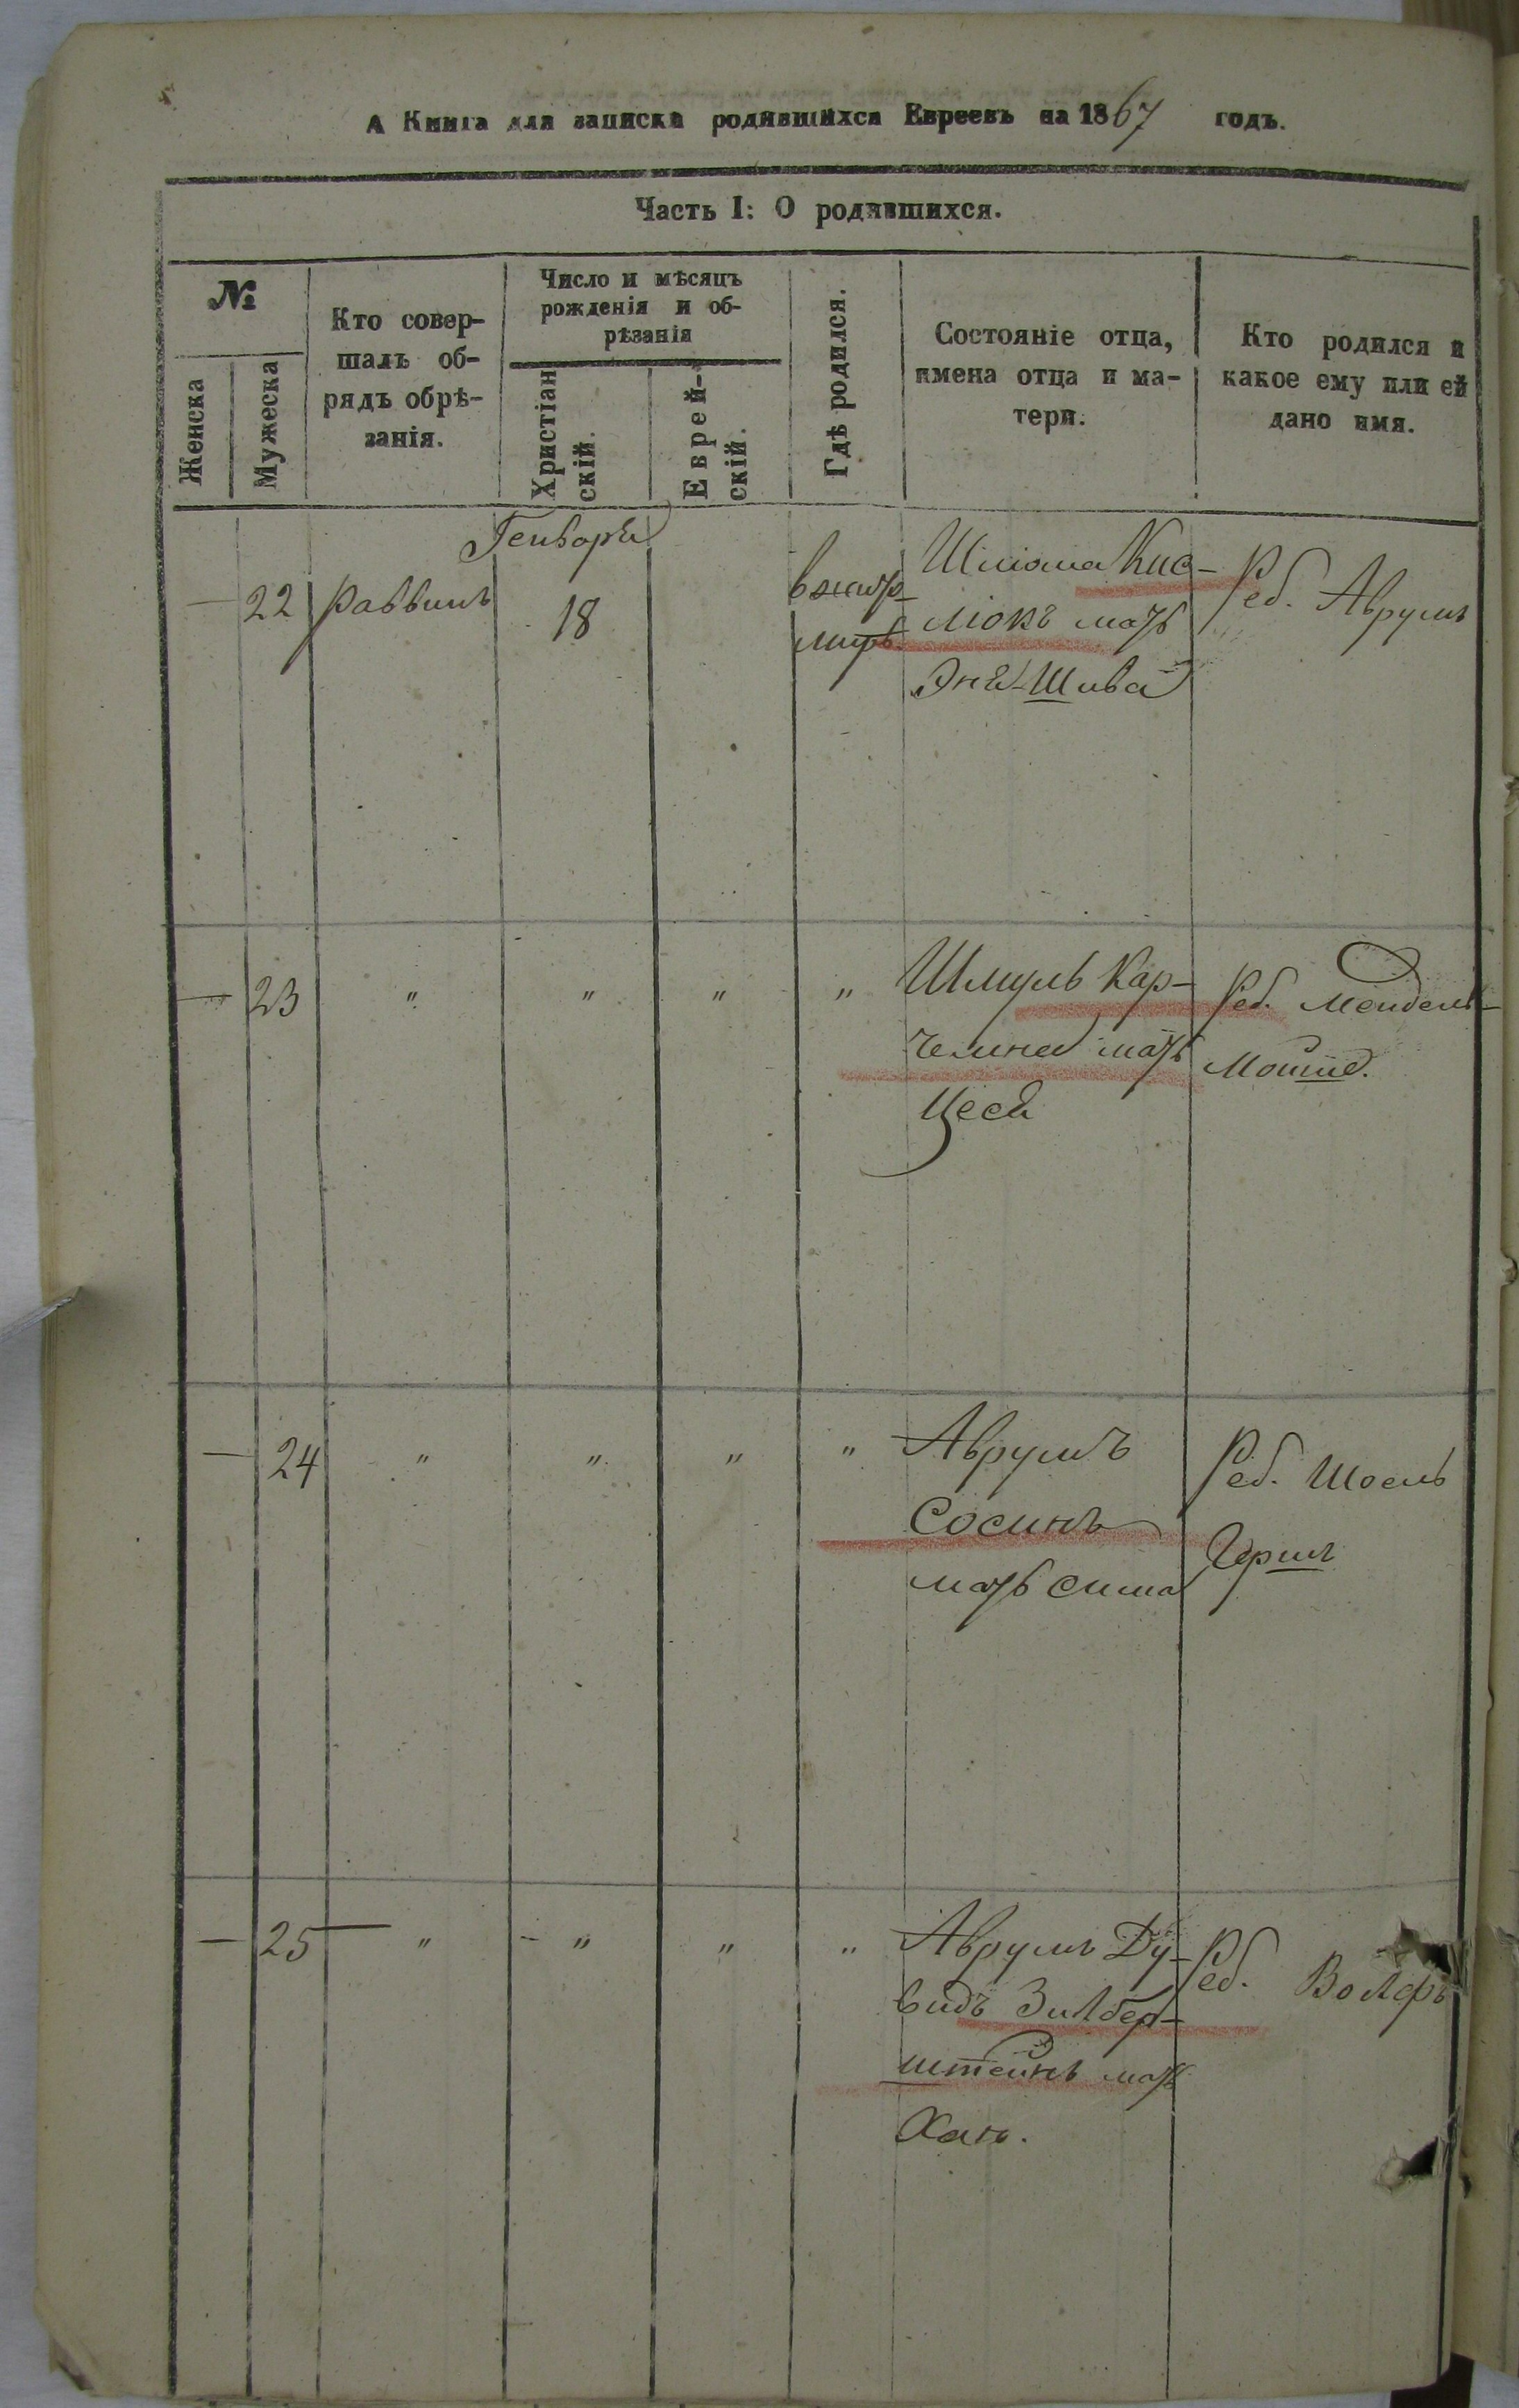 А Книга для записки родившихся Евреевъ на 1867 годъ.
Часть I: О родившихся.
№
Женска
Мужеска
Кто совер-
шалъ об-
рядъ обрѣ-
занія.
Число и мѣсяцъ
рожденія и об-
рѣзанія
Христіан
скій.
Еврей-
скій.
Гдѣ родился.
Состояніе отца,
имена отца и ма-
тери.
Кто родился и
какое ему или ей
дано имя.
Генваря
— 22 Раввинъ 18
вжит
миръ
Шліома Кис-
люкъ мать
Эня-Шива
Реб. Аврумъ
— 23 " " " "
Шмуль Кар-
чемна мать
Цеся
Реб. Мендель-
Мошко.
— 24 " " " "
Аврумъ
Сосинъ
мать Сима
Реб. Шоель
Гершъ
— 25 — " - " " "
Аврумъ Ду-
видъ Зилбер-
штейнъ мать
Хая.
Реб. Волфъ